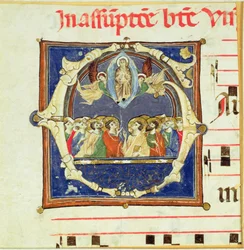 In assūptōe bt̄e Vir